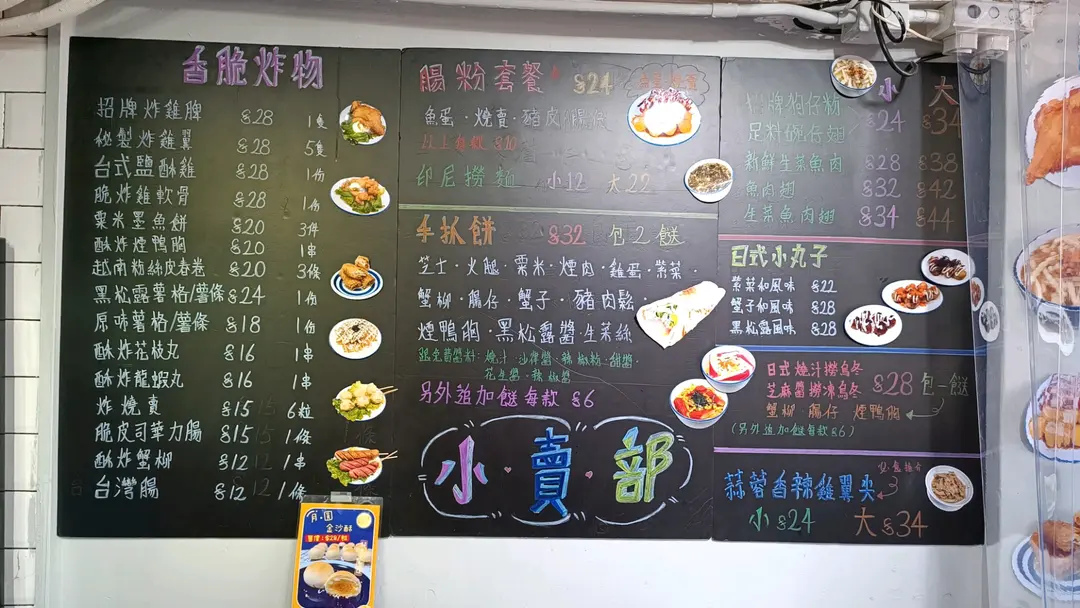 香脆炸物
招牌炸雞髀 $28 1隻
秘製炸雞翼 $28 5隻
台式鹽酥雞 $28 1份
脆炸雞軟骨 $28 1份
粟米墨魚餅 $20 3件
酥炸煙鴨胸 $20 1串
越南粉絲皮春卷 $20 3條
黑松露薯格/薯條 $24 1份
原味薯格/薯條 $18 1份
酥炸花枝丸 $16 1串
酥炸龍蝦丸 $16 1串
炸燒賣 $15 6粒
脆皮司華力腸 $15 1條
酥炸蟹柳 $12 1串
台灣腸 $12 1條
腸粉套餐 $24
魚蛋・燒賣・豬皮・腸仔
以上每款 $10
印尼撈麵 小12 大22
手抓餅 $32 包2餸
芝士・火腿・粟米・煙肉・雞蛋・紫菜・
蟹柳・腸仔・蟹子・豬肉鬆・
煙鴨胸・黑松露醬・生菜絲
花生醬・辣椒醬
另外追加餸每款 $6
小・賣・部
小 大
招牌碗仔粉 $24 $34
足料碗仔翅
新鮮生菜魚肉 $28 $38
魚肉翅 $32 $42
生菜魚肉翅 $34 $44
日式小丸子
紫菜和風味 $22
蟹子和風味 $28
黑松露風味 $28
日式燒汁撈烏冬
芝麻醬撈凍烏冬 $28 包一餸
蟹柳・腸仔 煙鴨胸
(另外追加餸每款$6)
蒜蓉香辣雞翼尖
小$24 大$34
金沙酥